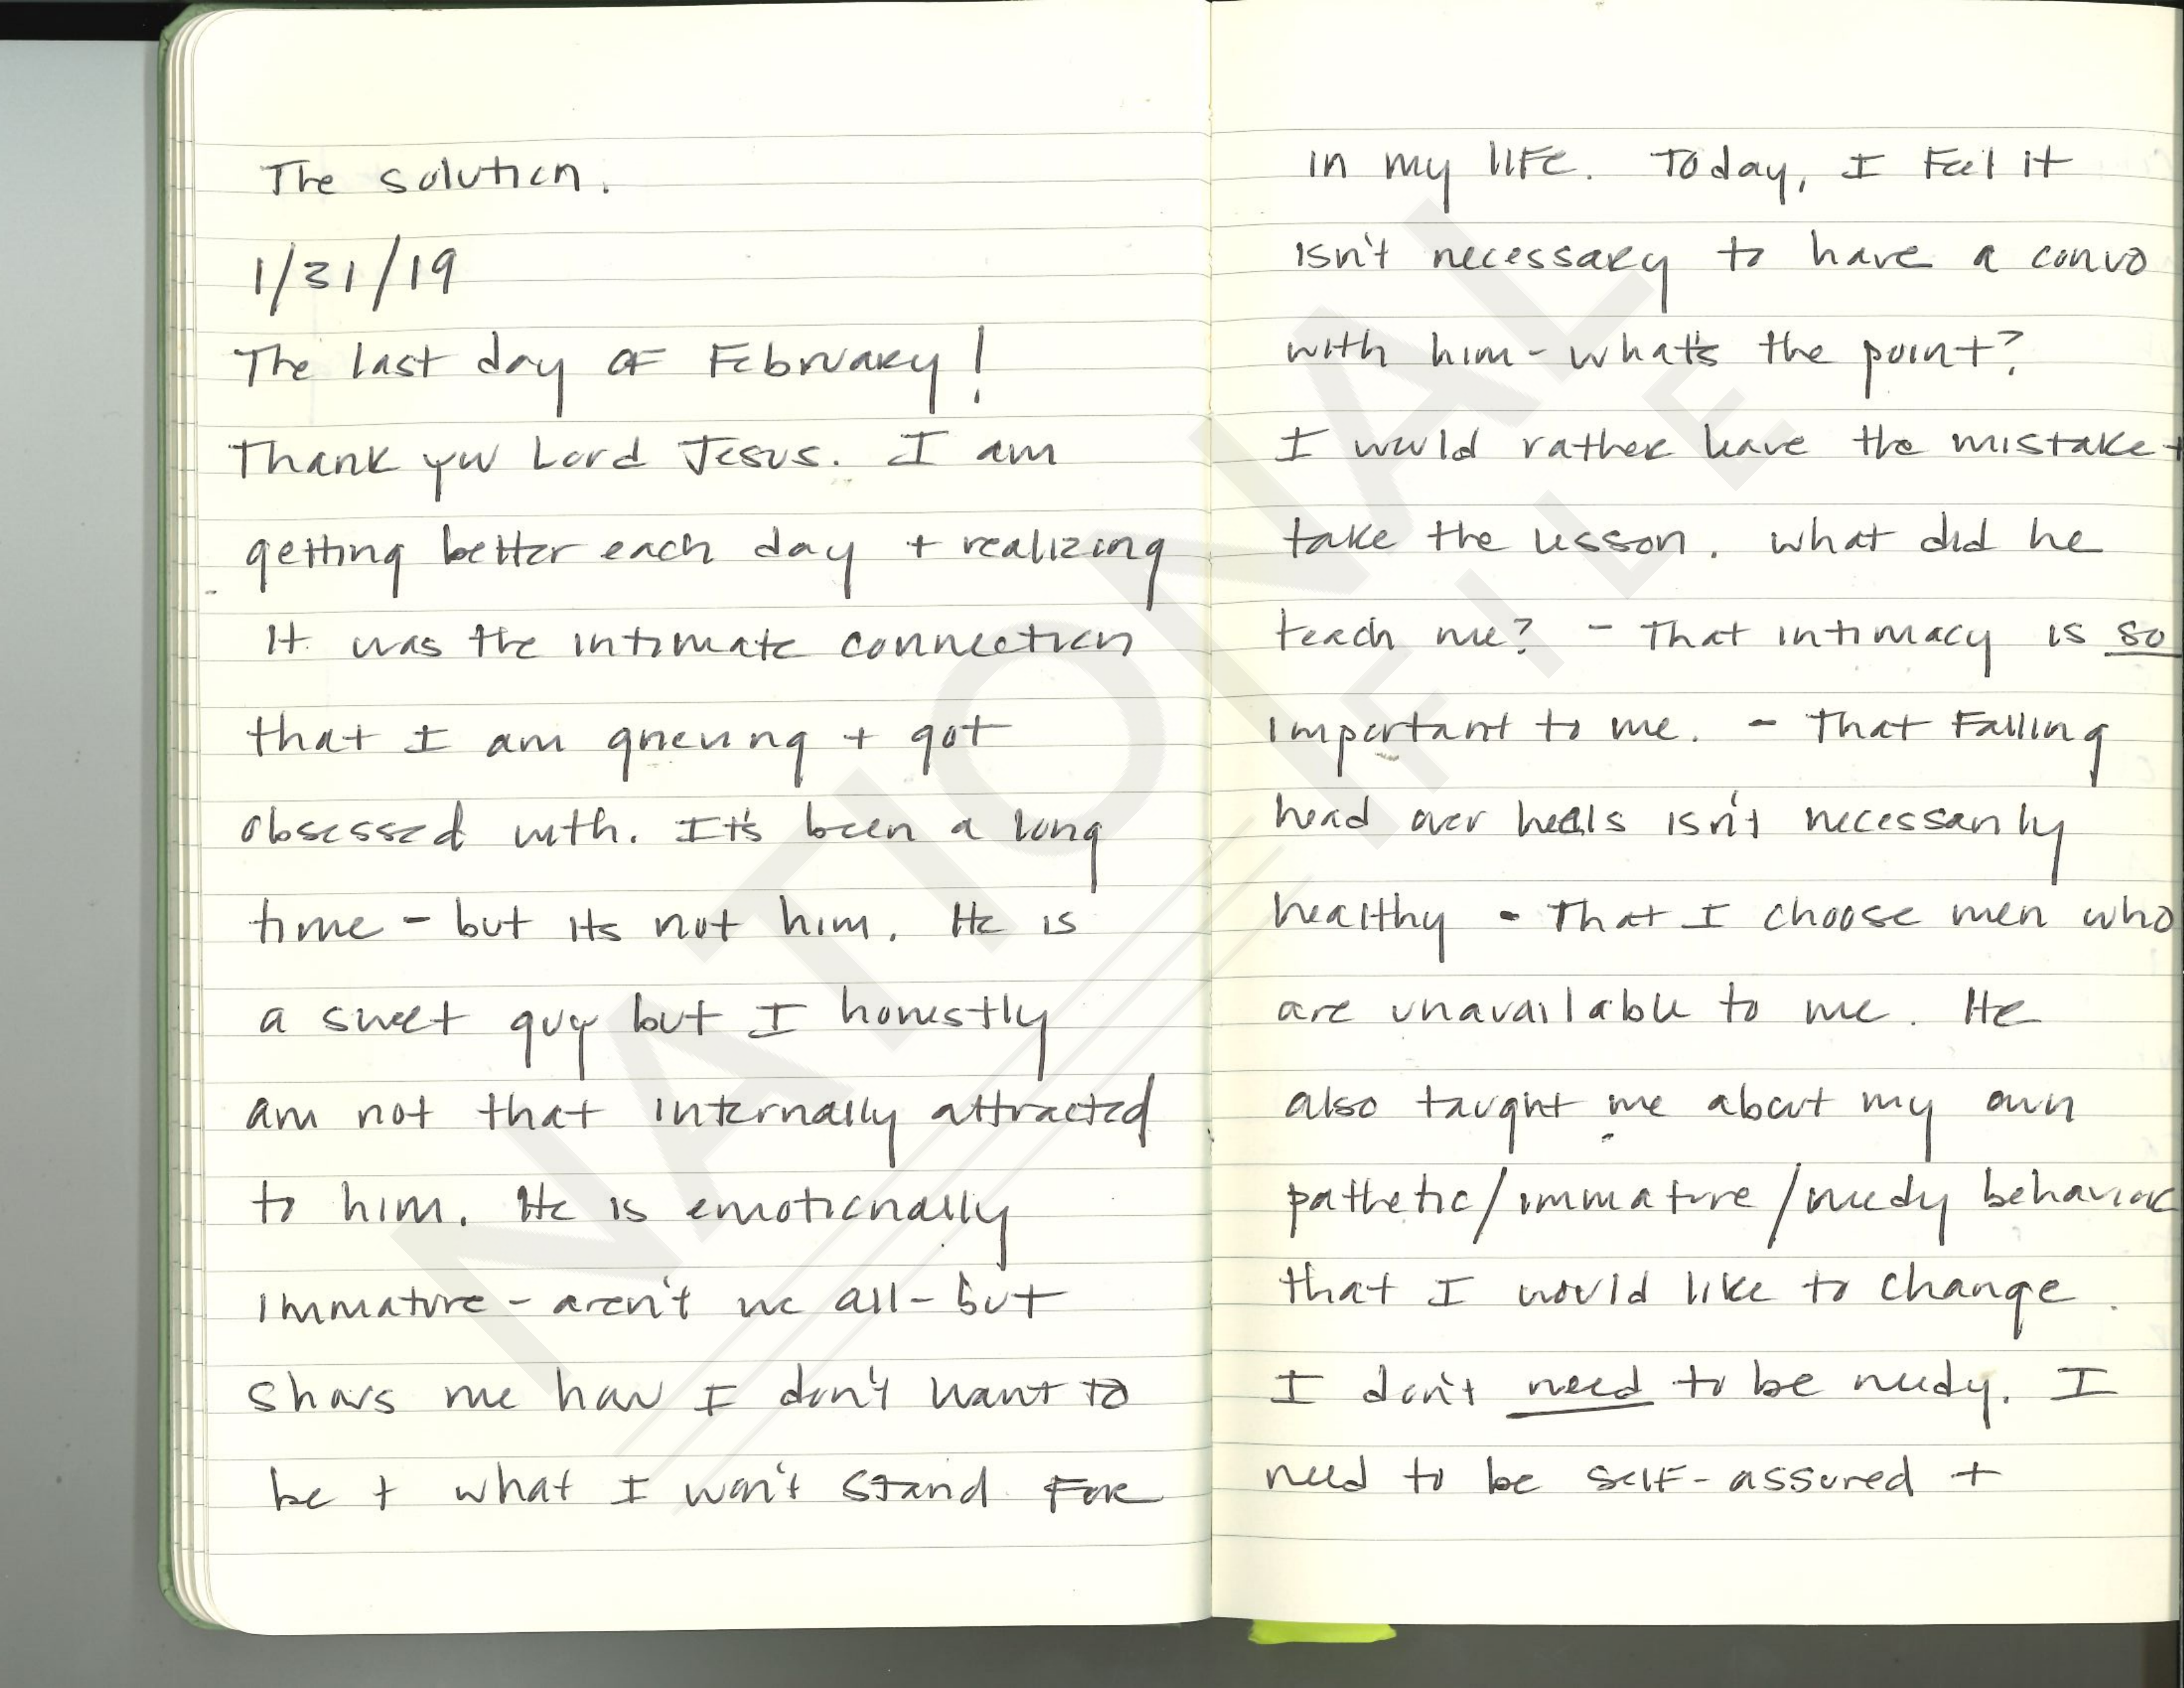 The solution.
1/31/19
The last day of February!
Thank you Lord Jesus. I am
getting better each day + realizing
it was the intimate connection
that I am grieving + got
obsessed with. It's been a long
time - but its not him. He is
a sweet guy but I honestly
am not that internally attracted
to him. He is emotionally
immature - aren't we all - but
shows me how I don't want to
be + what I won't stand for
in my life. Today, I feel it
isn't necessary to have a convo
with him - what's the point?
I would rather leave the mistake +
take the lesson. What did he
teach me? - That intimacy is so
important to me. - That falling
head over heals isn't necessarily
healthy - That I choose men who
are unavailable to me. He
also taught me about my own
pathetic/immature/needy behavior
that I would like to change.
I don't need to be needy. I
need to be self-assured +
NATIONAL
FILE